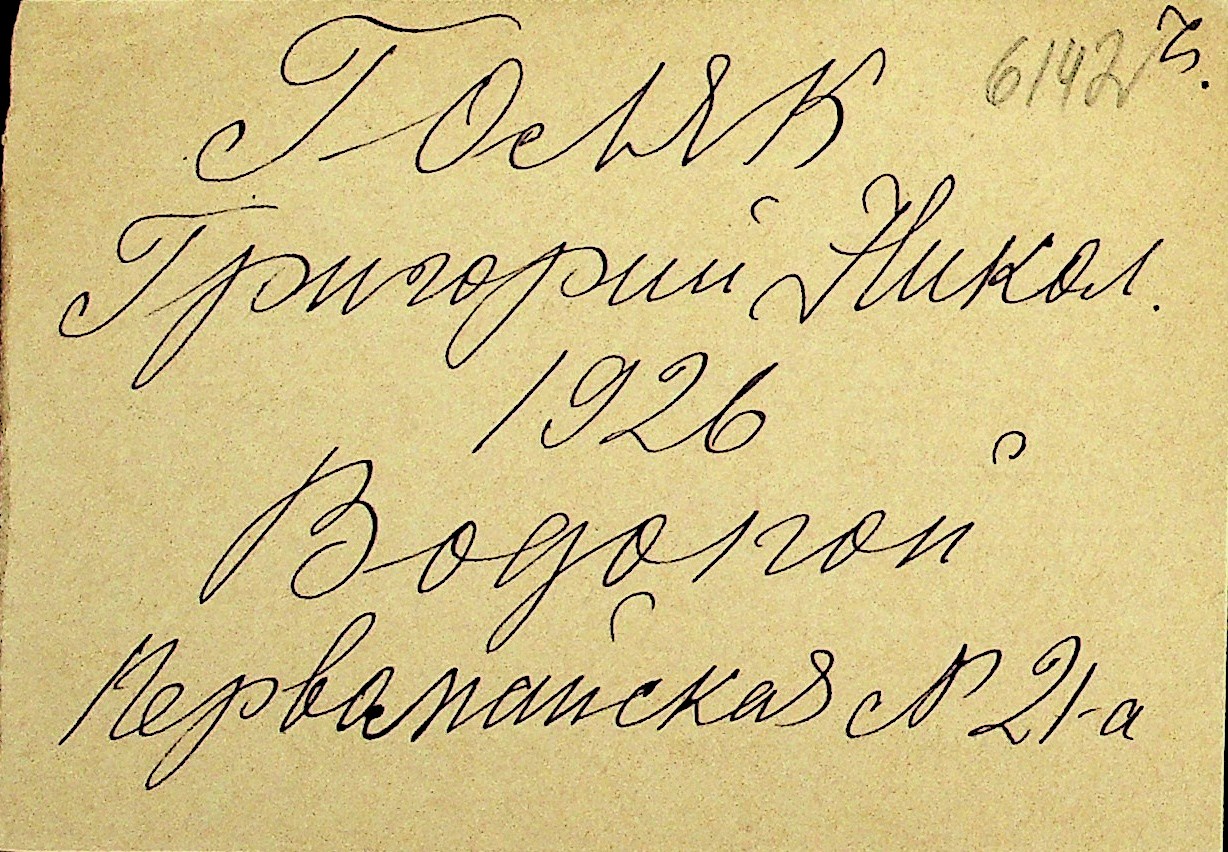 6142
Григорий Никол.
1926
Водопой
Первомайская № 21-а